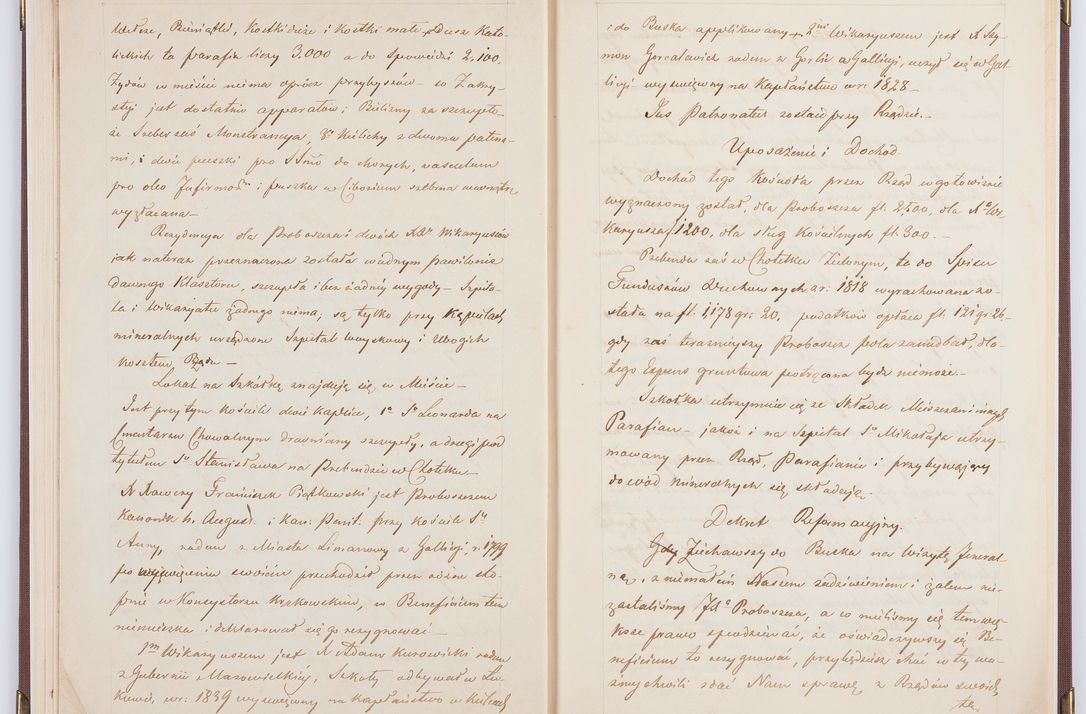 wełcze, Kostki duże i Kostki małe, Dusz Kato-
lickich ta parafia liczy 3.000 a do Spowiedzi 2,100.
Żydów w mieście niema oprócz przybyszów – w Zakry-
styi jest dostatnio apparatów; Bielizny za szczupło-
ze Srebrzeoś Monstrancya, 3. Kielichy z dwoma patena-
mi, i dwie puszki pro SSmo do chorych, vasculum
pro oleo Infirmor i puszka w Ciborium srebrna wewnątrz
wyzłacana –
Rezydencya dla Proboszcza i dwóch XXy Wikaryuszów
jak natera przeznaczona została w jednym pawilonie
dawnego Klasztoru, szczupła i bez żadnej wygody – Szpita-
la i wikaryatu żadnego niema, są tylko przy kąpielach
mineralnych urządzone Szpital woyskowy i Ubogich
kosztem Rządu –
Lokal na Szkółkę znajduje się w Mieście –
Jest przy tym Kościele dwie kaplice, 1a So Leonarda na
Cmentarzu Chowalnym drewniany szczupły, a drugi pod
tytułem So Stanisława na Prebendzie w Chotelku –
X Xawery Franciszek Piątkowski jest Proboszczem
Kanonik h. August. i Kan: Penit. przy Kościele Sey
Anny, rodem z Miasta Limanowy z Gallicyi r. 1799
po wyświęceniu swoiém przechodził przez różne sto-
pnie w Konsystorzu Krakowskim, w Beneficium tem
niemieszka i deklarował się go rezygnować –
1m Wikaryuszem jest X Adam Kurowicki rodem
z Gubernii Mazowieckiej, Szkoły odbywał w
w r: 1839 wyświęcony na kapłaństwo w Kielcach
i do Buska applikowany – 2gim Wikaryuszem jest X Szy-
mon Gorcatowicz rodem z Gorlic w Gallicyi, uczył się w Gal-
licyi wyświęcony na Kapłaństwo w r: 1828 –
Jus Patronatus zostaie przy Rządzie. –
Uposażenie i Dochód
Dochód tego Kościoła przez Rząd w gotowiznie
wyznaczony został, dla Proboszcza fl. 2500, dla Xo Wi-
karyusza 1200, dla sług Kościelnych fl. 300. –
Prebenda zaś w Chotelku Zielonym, ta do Spisu
Funduszów Duchownych w r: 1818 wyrachowana zo-
stała na fl. 1178 gr: 20, podatków opłaca fl. 121 gr: 26 –
gdy zaś teraźniejszy Proboszcz pola zaniedbał, dla-
tego Expens gruntowa potrącona być niemoże. –
Szkółka utrzymuie się ze Składek Mieszczan i innych
Parafian – jakoż i na Szpital So Mikołaja utrzy-
mowany przez Rząd, Parafianie i przybywający
do wód Mineralnych się składają. –
Dekret Reformacyjny.
Gdy Ziechawszy do Buska na Wizytę Jeneral-
ną, z niemałem Naszem zadziwieniem i żalem nie-
zastaliśmy JXo Proboszcza, a co mieliśmy się tem wię-
ksze prawo spodziewać, że oświadczywszy się Be-
neficium to rezygnować, przybędzie choć w tey wa-
żney chwili zdać Nam sprawę z Rządów swoich